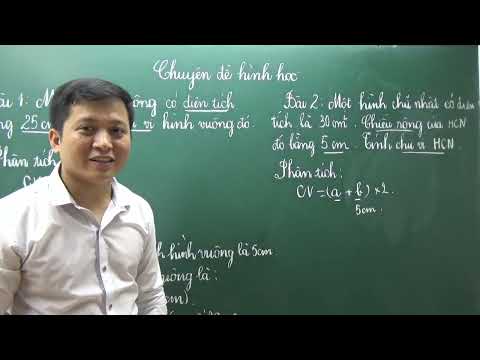 Chuyên đề hình học
Bài 1: M ông có diện tích
25cm chu vi hình vuông đó.
Phân tích
CV
h hình vuông là 5cm
uông là :
cm)
Bài 2: Một hình chữ nhật có diện
tích là 30cm². Chiều rộng của HCN
đó bằng 5cm. Tính chu vi HCN.
Phân tích :
CV = (a + b) × 2.
5cm.